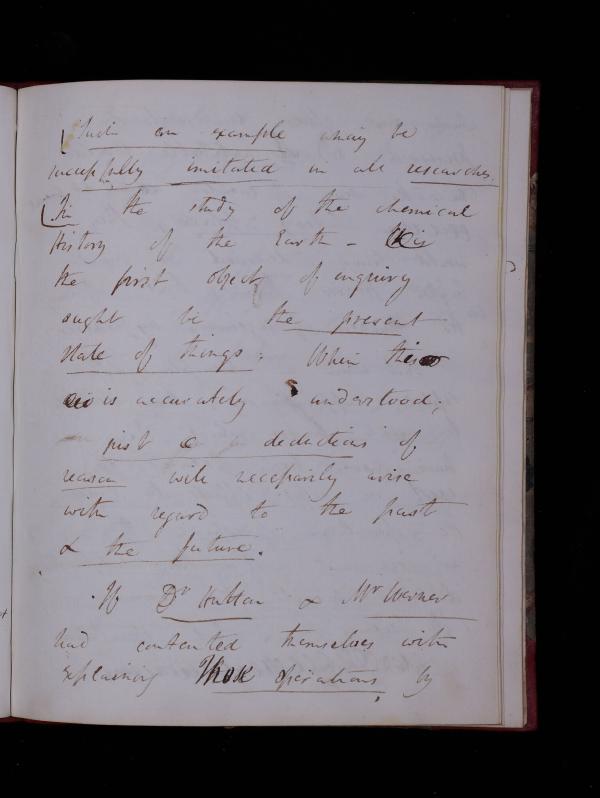 Such an example may be
successfully imitated in all researches.
In the study of the chemical
History of the Earth –
the first object of enquiry
ought be the present
state of things; When this
is accurately understood;
just deductions of
reason will necessarily arise
with regard to the past
& the future.
If Dr Hutton & Mr Werner
had contented themselves with
explaining those operations by